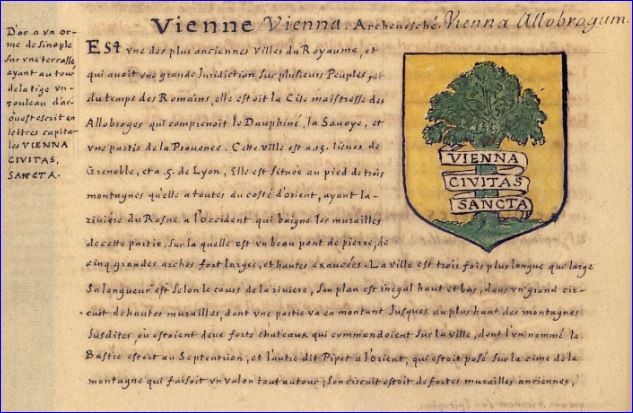 Vienne Vienna. Archevesché. Vienna Allobrogum.
D'or a vn or-
me de sinople
sur vne terrasse
ayant autour
de la tige vn
rouleau d'ar
ou est escrit en
lettres capita-
les VIENNA
CIVITAS,
SANCTA.
Est vne des plus anciennes villes du Royaume, et
qui auoit vne grande Iuridiction sur plusieurs Peuples, et
du temps des Romains, elle estoit la Cité maistresse des
Allobroges qui comprenoit le Dauphiné, la Sauoye, et
vne partie de la Prouence. Cette ville est a 15. lieues de
Grenoble, et a 5. de Lyon, Elle est située au pied de trois
montagnes qu'elle a toutes du costé d'orient, ayant la
riuiere du Rosne a l'occident qui baigne les murailles
de cette partie, sur la quelle est vn beau pont de pierre, de
cinq grandes arches fort larges, et hautes exaucées. La ville est trois fois plus longue que large
Sa longueur est selon le cours de la riuiere, son plan est inegal haut et bas, dans vn grand cir-
cuit de hautes murailles, dont vne partie va en montant Iusques au plus haut des montagnes
susdites, où estoient deux forts chateaux qui commandoient sur la ville, dont l'vn nommé la
Bastie estoit au Septentrion, et l'autre dit Pipet a l'orient, qui estoit posé sur la cime de la
montagne qui faisoit vn valon tout autour; son circuit estoit de fortes murailles anciennes,
VIENNA
CIVITAS
SANCTA